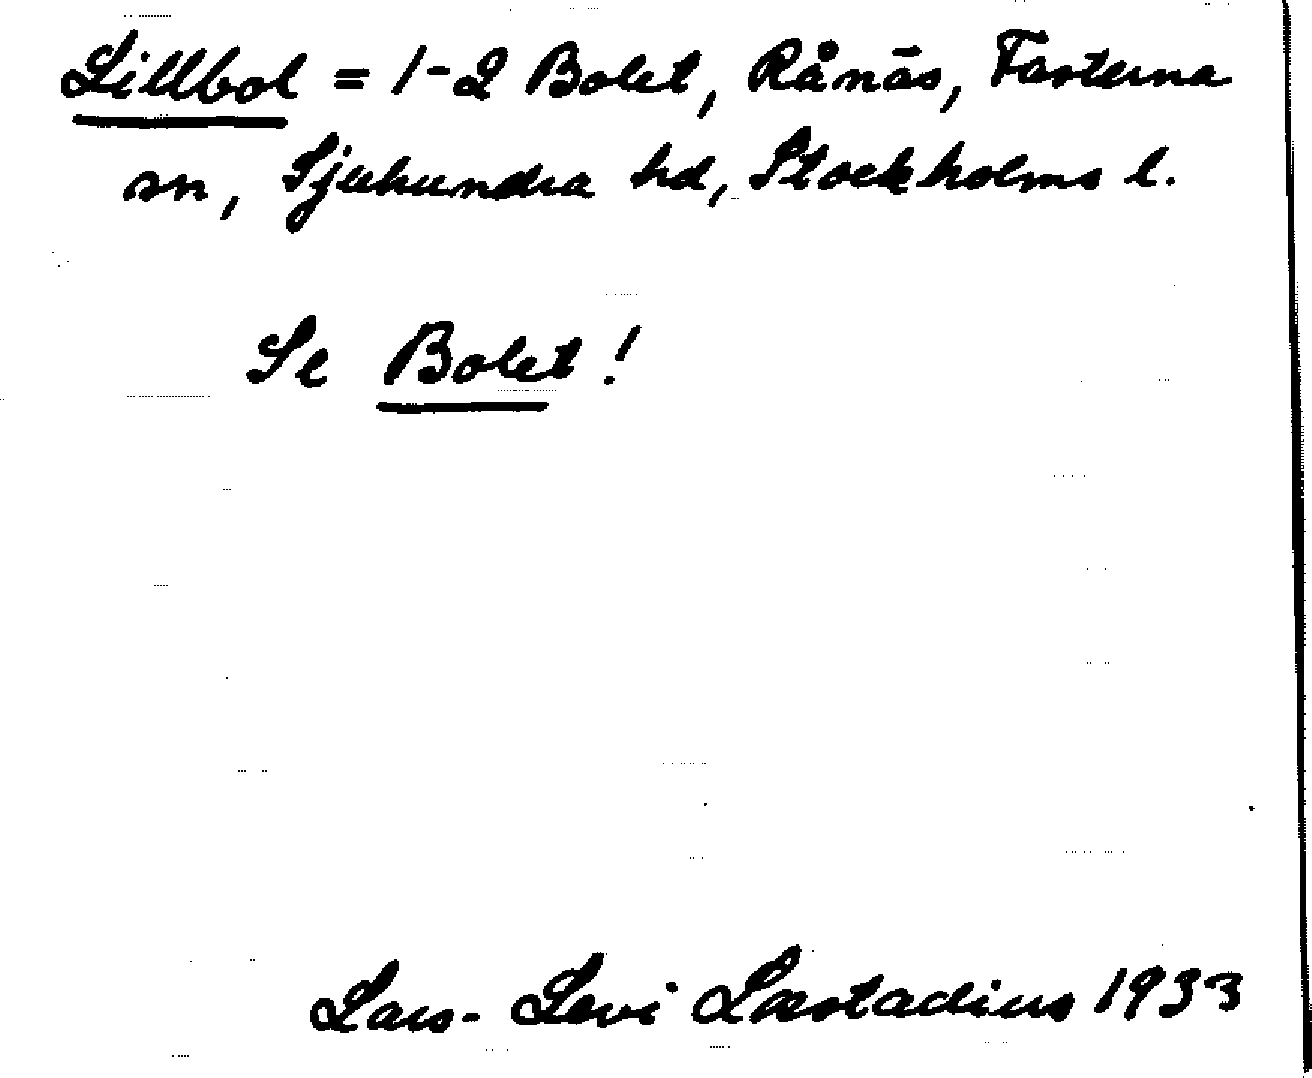 Lillbol = 1-2 Bolet, Rånäs, Fasterna
sn, Sjuhundra hd, Stockholms l.
Se Bolet!
Lars-Levi Læstadius 1933